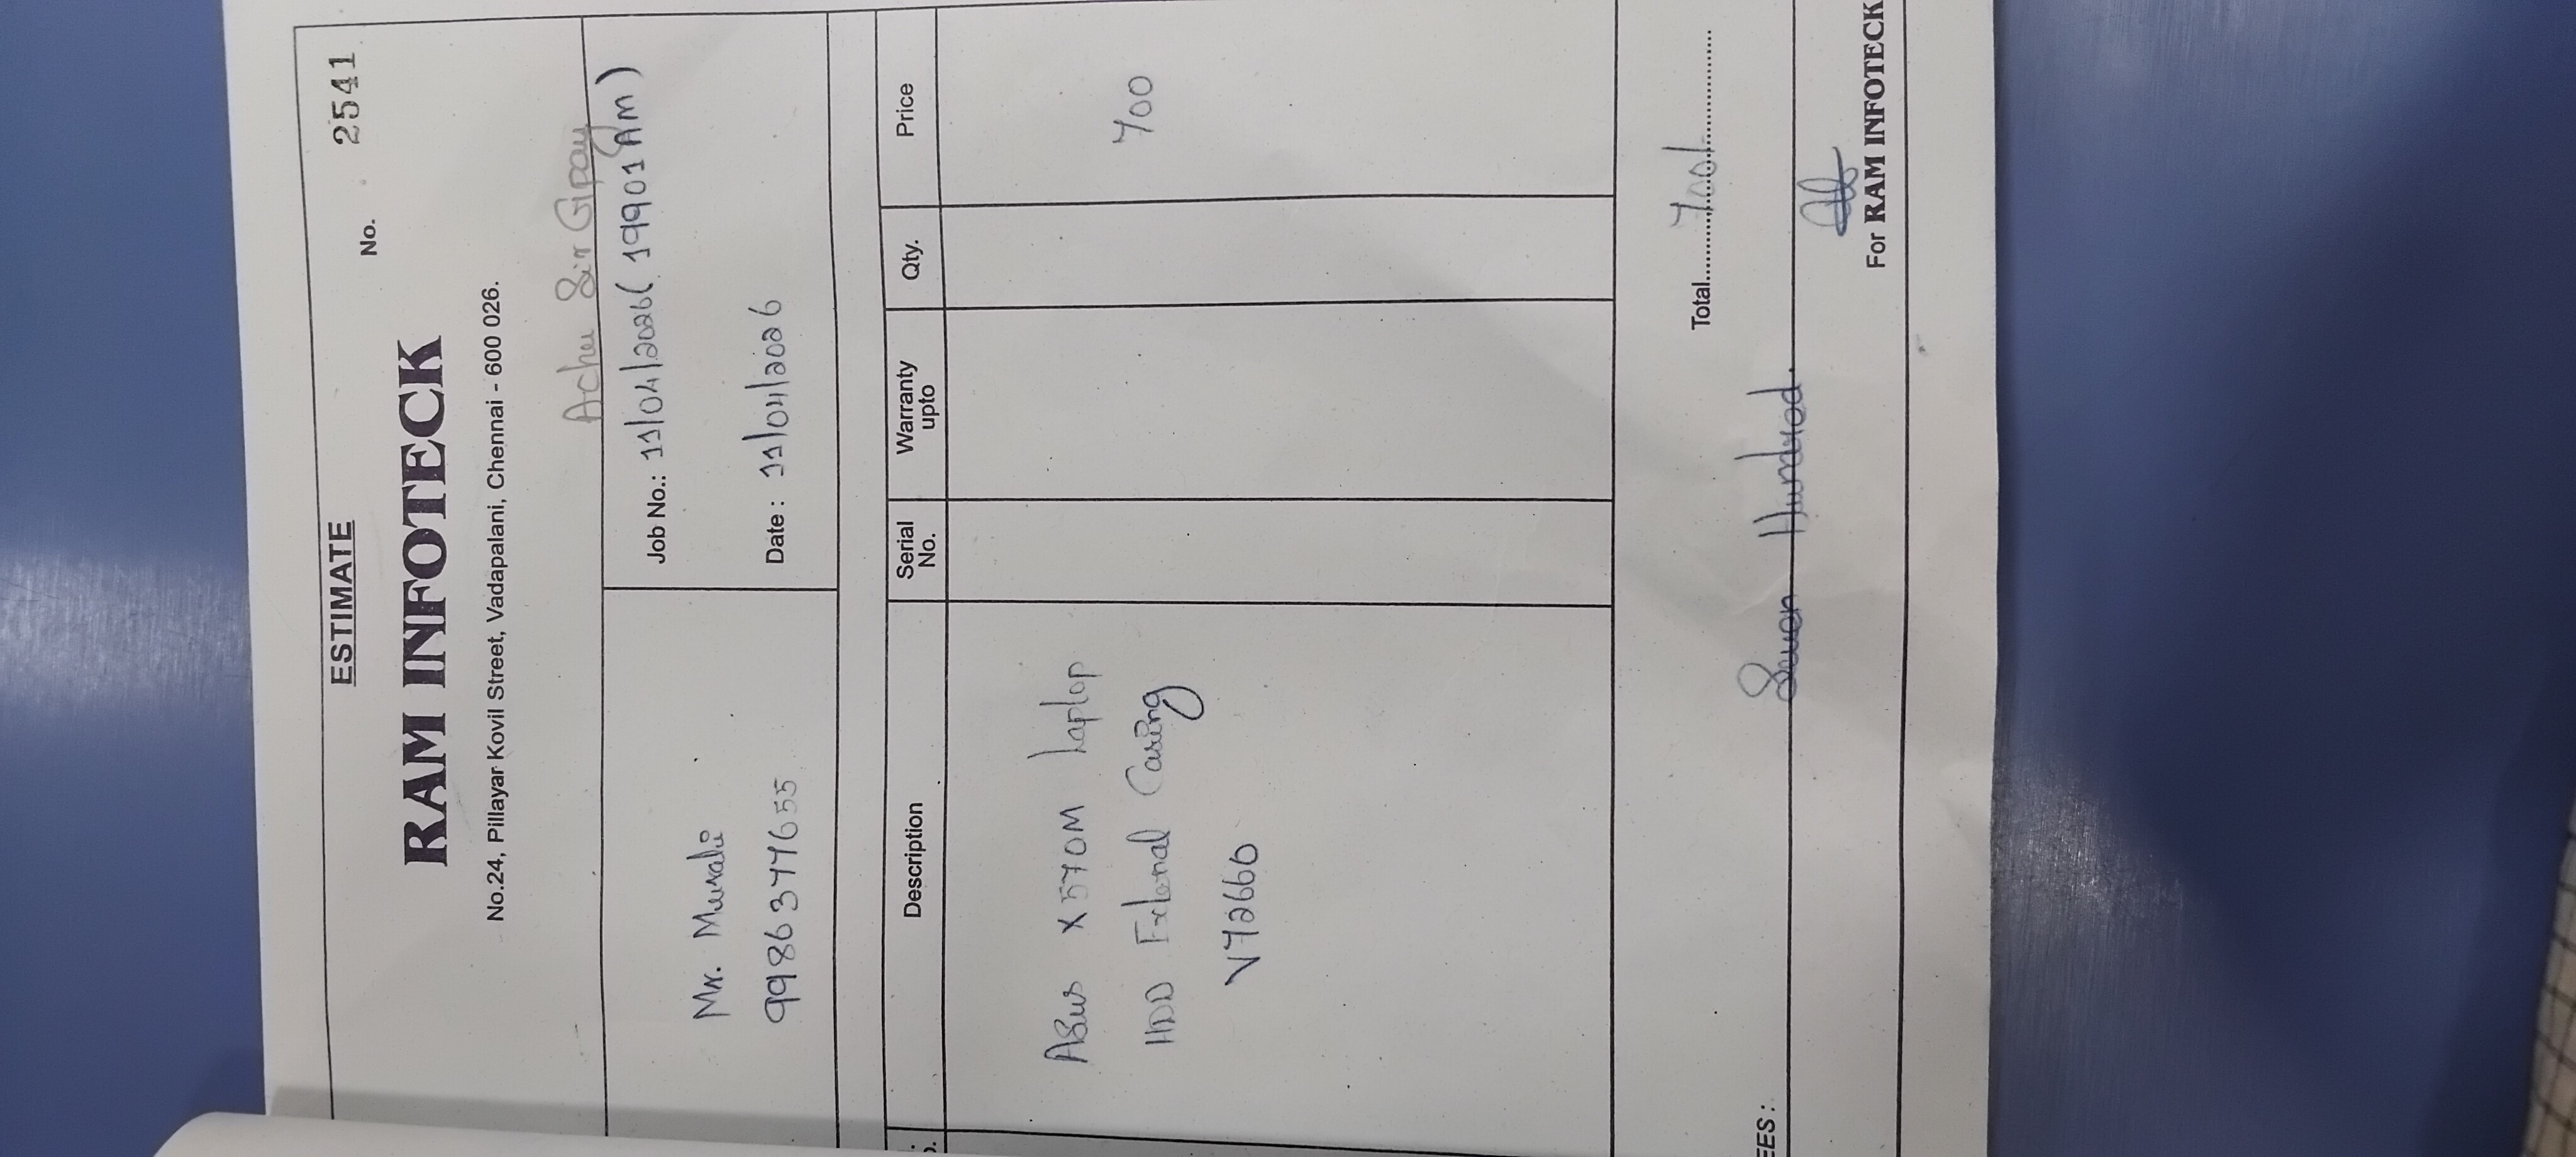 ESTIMATE
No. 2541
RAM INFOTECK
No.24, Pillayar Kovil Street, Vadapalani, Chennai - 600 026.
Achu Sir Gpay
Job No.: 11/04/2026 (19901AM)
Mr. Murali
Date : 11/04/2026
9986377655
Description Serial No. Warranty upto Qty. Price
Asus X570M Laptop
HDD External Casing 700
V72666
Total 700/-
EES: Seven Hundred.
For RAM INFOTECK